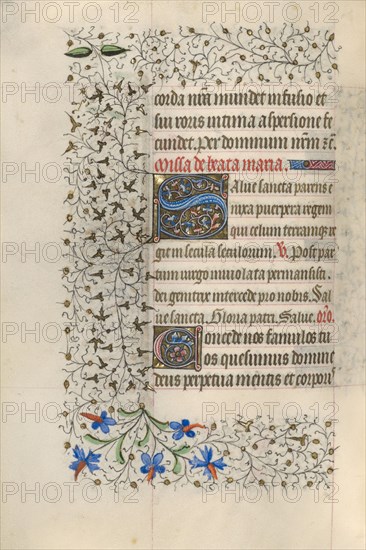 corda nr̄a mundet infusio et
sui roris intima aspersione fe
cundet. Per dominum nr̄m ⁊c̄.
Missa de beata maria.
Salve sancta parens e
nixa puerpera regem
qui celum terramq; re
git in secula seculorum. V. Post par
tum virgo inviolata permansisti.
dei genitrix intercede pro nobis. Sal
ve sancta. Gloria patri. Salve. or̄o.
Concede nos famulos tu
os quesumus domine
deus perpetua mentis et corporis
PHOTO12